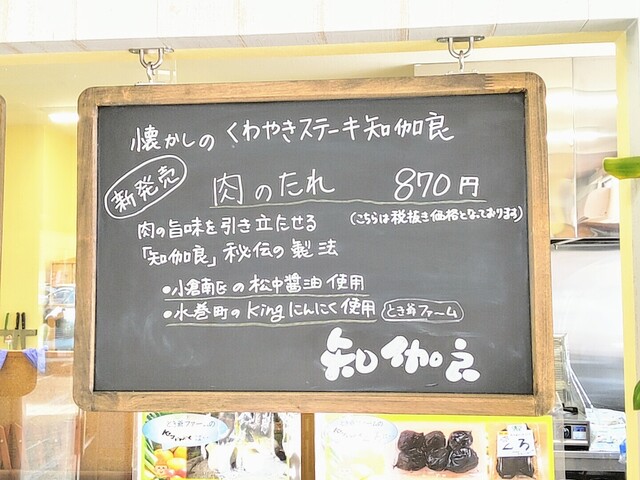 懐かしの くわやきステーキ知伽良
新発売
肉のたれ 870円
(こちらは税抜き価格となっております)
肉の旨味を引き立たせる
「知伽良」秘伝の製法
•小倉南区の松中醤油使用
•水巻町のKingにんにく使用 とき爺ファーム
知伽良
とき爺ファームの